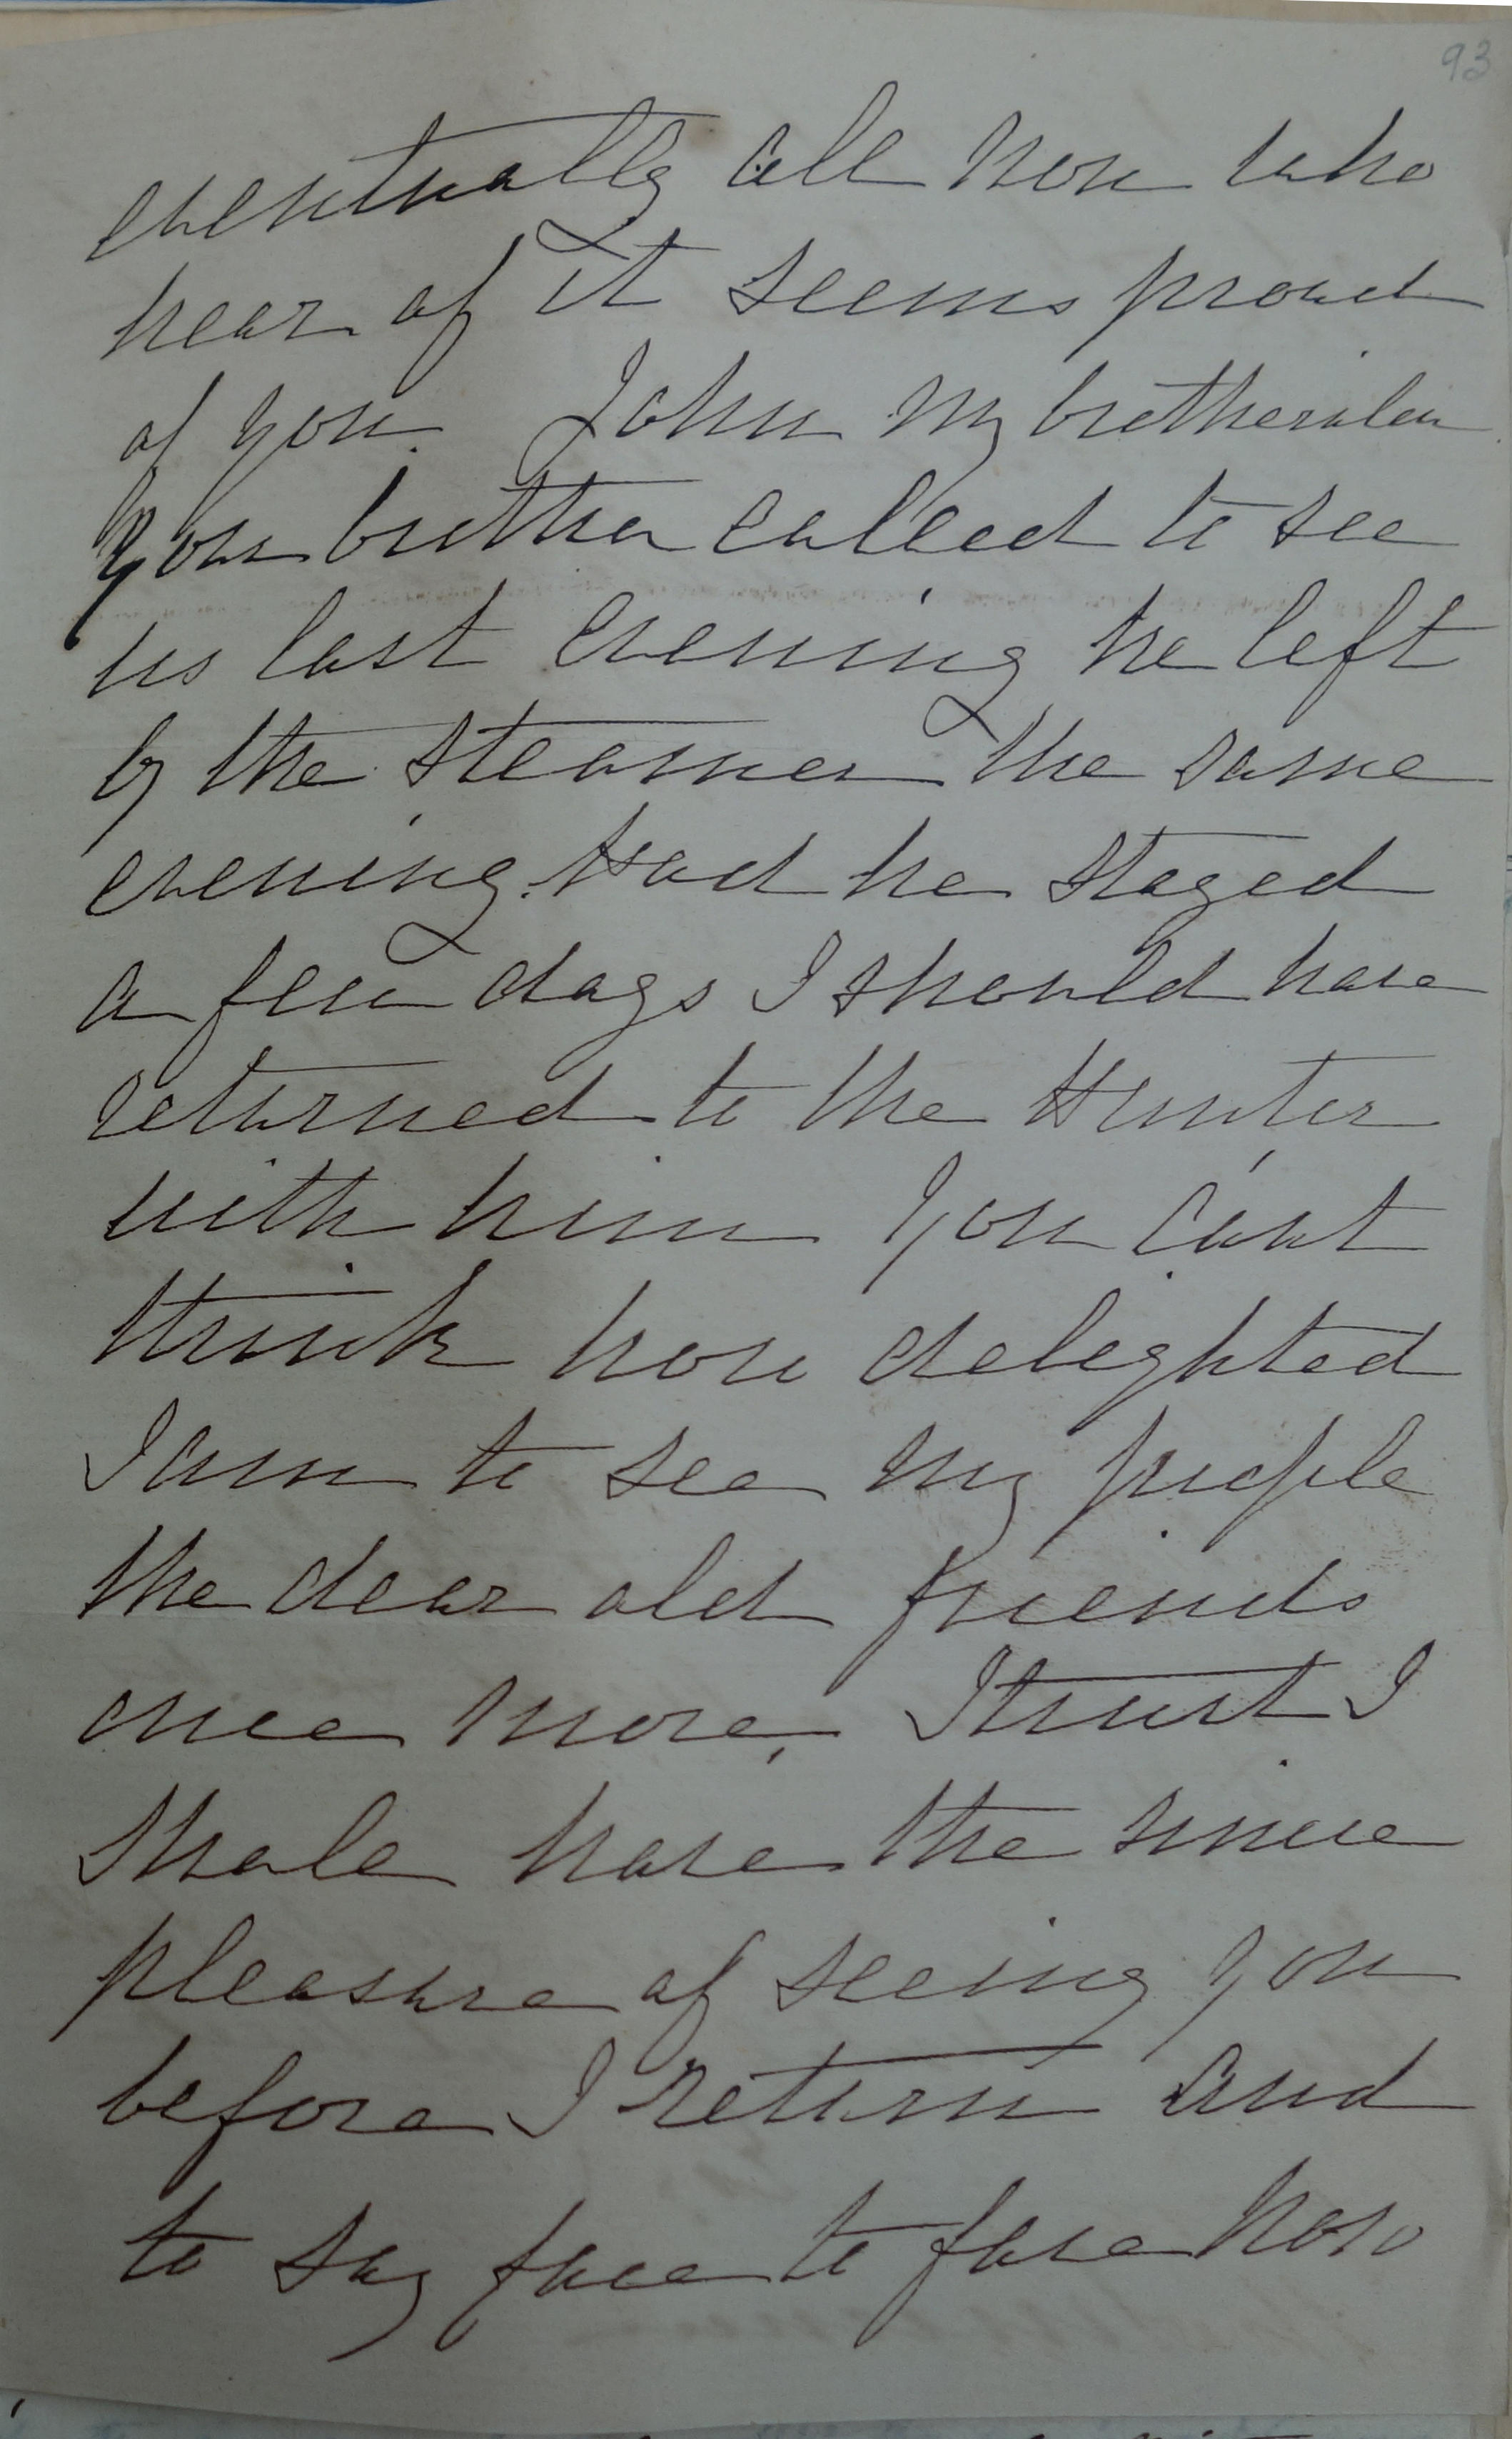 93
eventually all now who
hear of it seems proud
of you. John my brotherinlaw
your brother called to see
us last evening he left
by the steamer the same
evening. Had he stayed
a few days I should have
returned to the Hunter
with him You cant
think how delighted
I am to see my people
the dear old friends
once more, I trust I
shale have the sincere
pleasure of seeing you
before I return and
to say face to face how